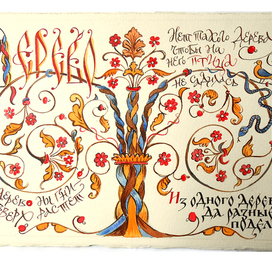 Дерево
Нет такого дерева
чтобы на
него птица
не садилась
дерево ни гни
вверх растет
Из одного дерев
да разны
подел